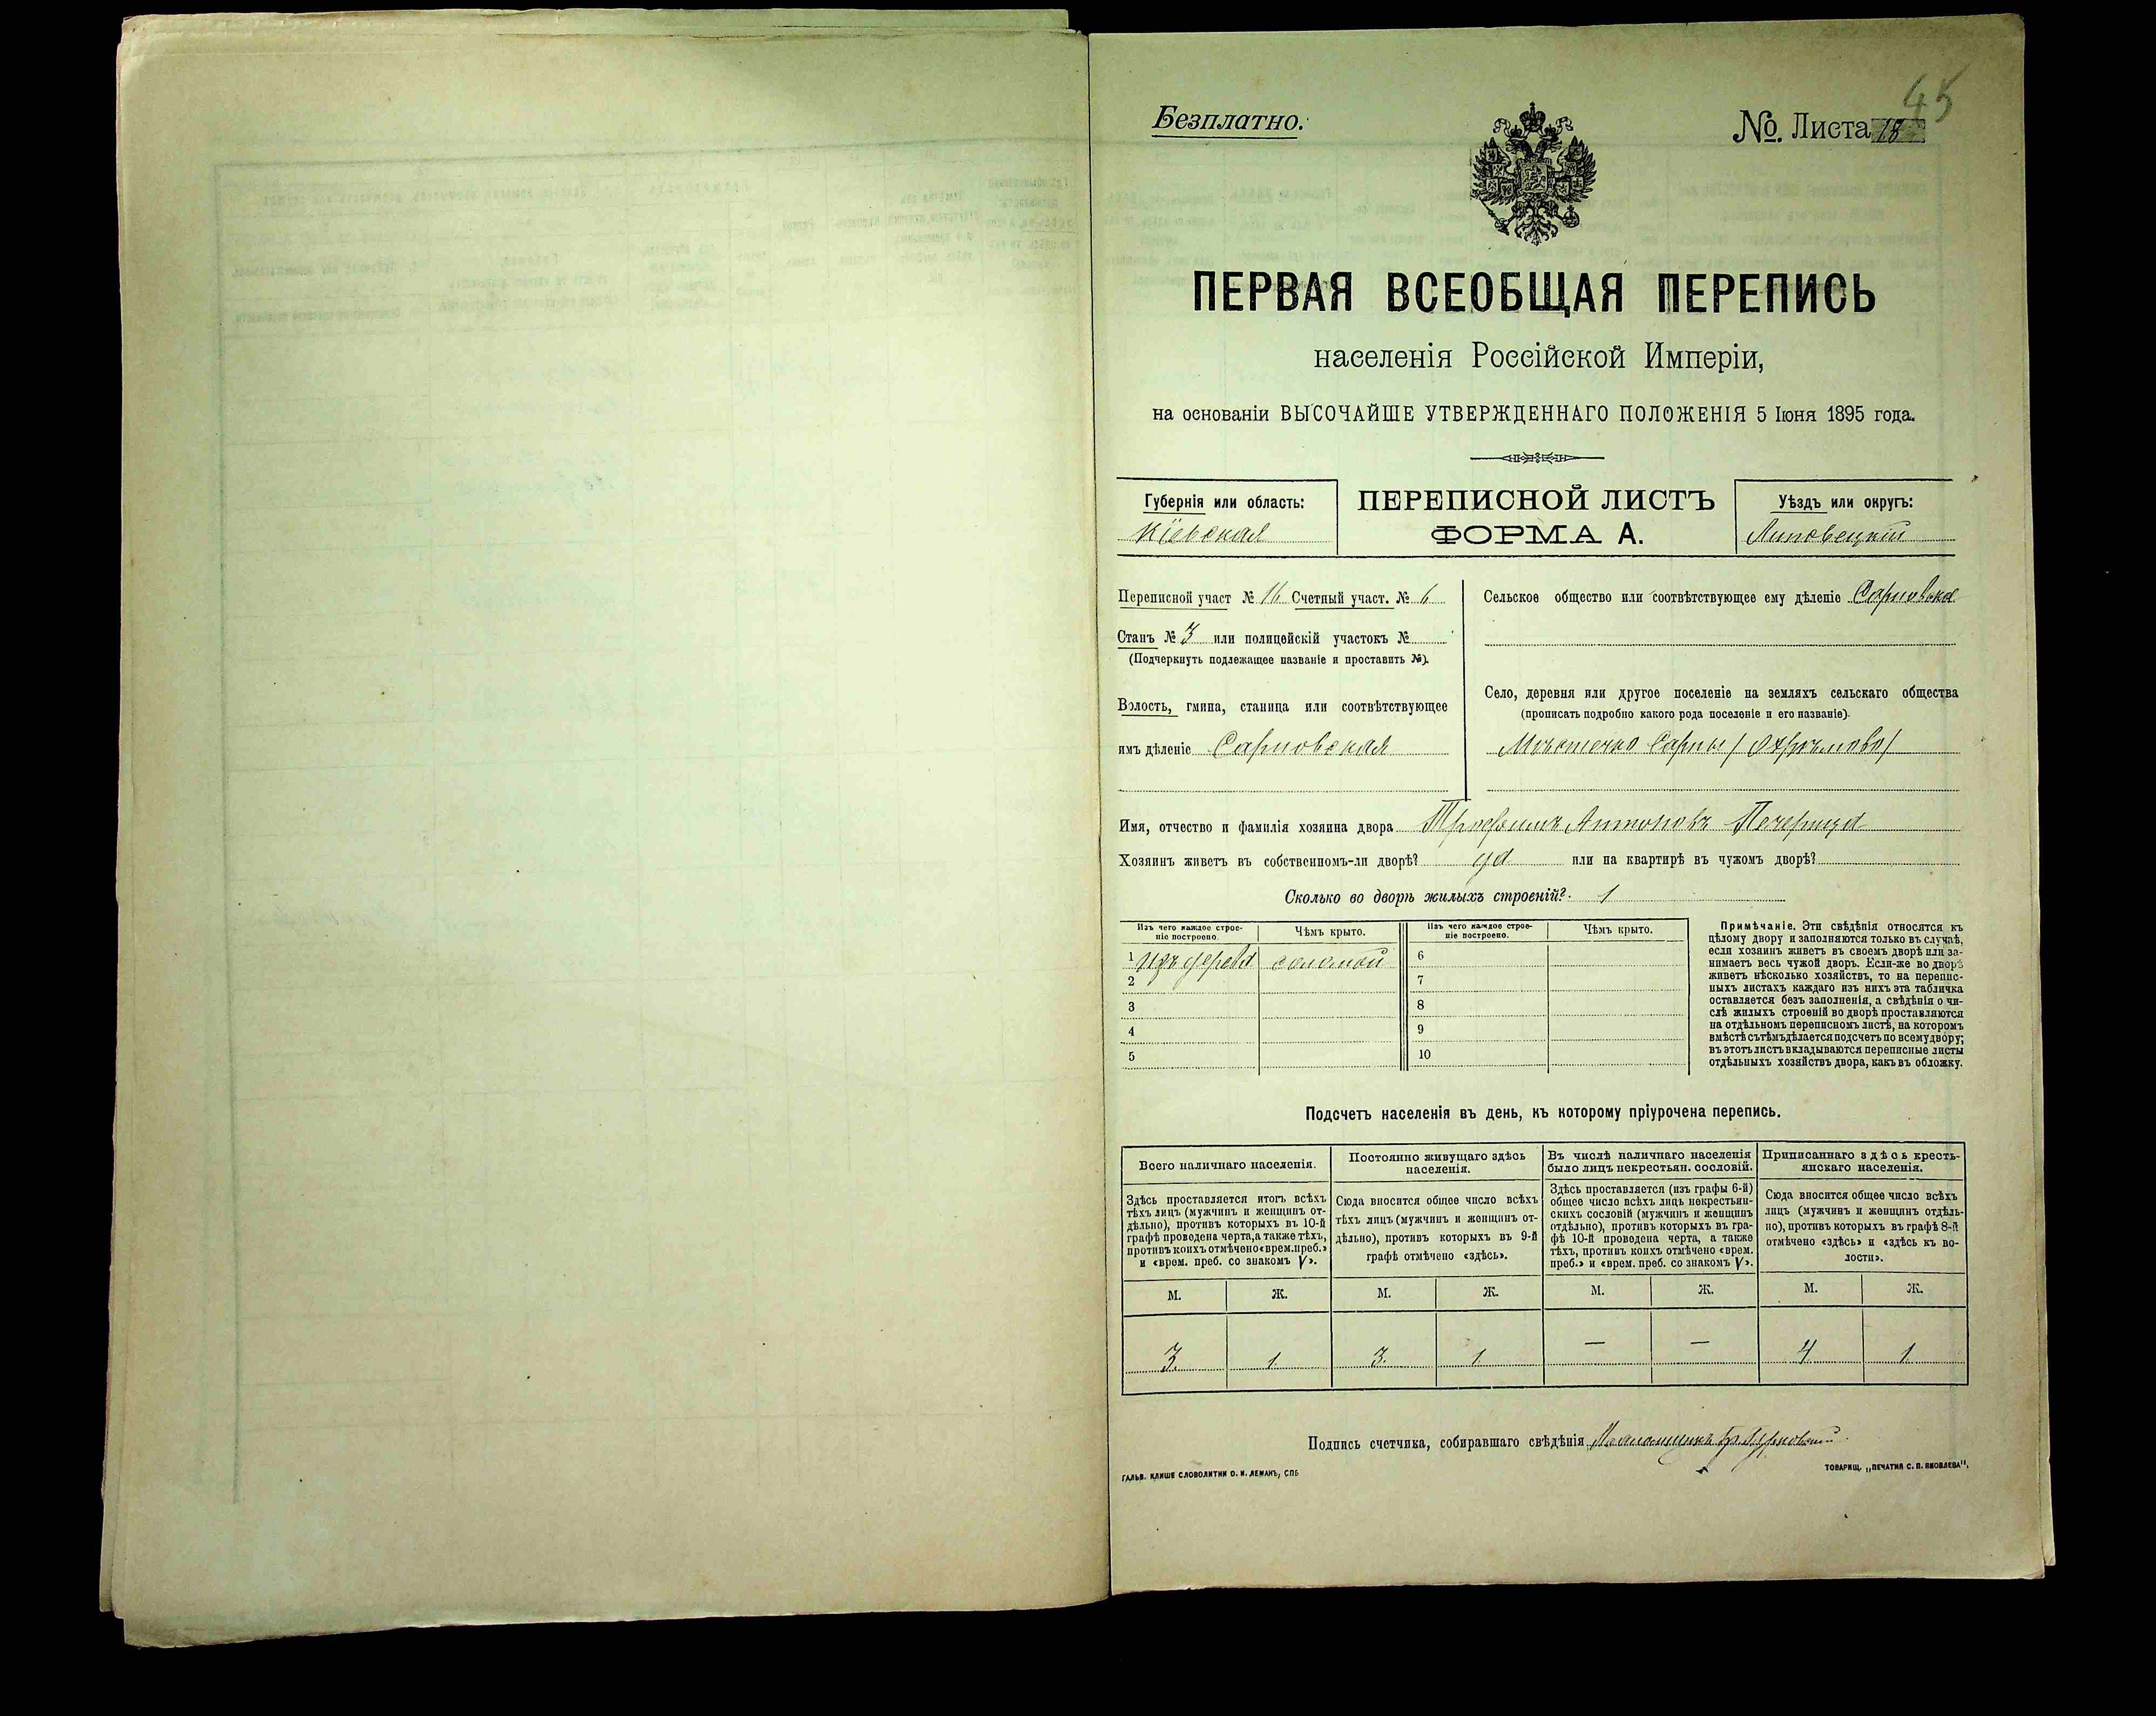 45
Безплатно.
№. Листа 18
ПЕРВАЯ ВСЕОБЩАЯ ПЕРЕПИСЬ
населенія Россійской Имперіи,
на основаніи ВЫСОЧАЙШЕ УТВЕРЖДЕННАГО ПОЛОЖЕНІЯ 5 Іюня 1895 года.
Губернія или область:
Кіевская
ПЕРЕПИСНОЙ ЛИСТЪ
ФОРМА А.
Уѣздъ или округъ:
Липовецкій
Переписной участ № 16 Счетный участ. № 6
Станъ № 3 или полицейскій участокъ №
(Подчеркнуть подлежащее названіе и проставить №).
Волость, гмина, станица или соотвѣтствующее
имъ дѣленіе Сарновская
Сельское общество или соотвѣтствующее ему дѣленіе Сарновское
Село, деревня или другое поселеніе на земляхъ сельскаго общества
(прописать подробно какого рода поселеніе и его названіе).
Мѣстечко Сарны
Имя, отчество и фамилія хозяина двора Трофимъ Антоновъ Печерица
Хозяинъ живетъ въ собственномъ-ли дворѣ? да или на квартирѣ въ чужомъ дворѣ?
Сколько во дворѣ жилыхъ строеній? 1
Изъ чего каждое строе-
ніе построено.
Чѣмъ крыто.
Изъ чего каждое строе-
ніе построено.
Чѣмъ крыто.
1 изъ дерева соломой 6
2 7
3 8
4 9
5 10
Примѣчаніе. Эти свѣдѣнія относятся къ
цѣлому двору и заполняются только въ случаѣ,
если хозяинъ живетъ въ своемъ дворѣ или за-
нимаетъ весь чужой дворъ. Если-же во дворѣ
живетъ нѣсколько хозяйствъ, то на перепис-
ныхъ листахъ каждаго изъ нихъ эта табличка
оставляется безъ заполненія, а свѣдѣнія о чи-
слѣ жилыхъ строеній во дворѣ проставляются
на отдѣльномъ переписномъ листѣ, на которомъ
вмѣстѣ съ тѣмъ дѣлается подсчетъ по всему двору;
въ этотъ листъ вкладываются переписные листы
отдѣльныхъ хозяйствъ двора, какъ въ обложку.
Подсчетъ населенія въ день, къ которому пріурочена перепись.
Всего наличнаго населенія.
Здѣсь проставляется итогъ всѣхъ
тѣхъ лицъ (мужчинъ и женщинъ от-
дѣльно), противъ которыхъ въ 10-й
графѣ проведена черта, а также тѣхъ,
противъ коихъ отмѣчено «врем. преб.»
и «врем. преб. со знакомъ V».
Постоянно живущаго здѣсь
населенія.
Сюда вносится общее число всѣхъ
тѣхъ лицъ (мужчинъ и женщинъ от-
дѣльно), противъ которыхъ въ 9-й
графѣ отмѣчено «здѣсь».
Въ числѣ наличнаго населенія
было лицъ некрестьян. сословій.
Здѣсь проставляется (изъ графы 6-й)
общее число всѣхъ лицъ некрестьян-
скихъ сословій (мужчинъ и женщинъ
отдѣльно), противъ которыхъ въ гра-
фѣ 10-й проведена черта, а также
тѣхъ, противъ коихъ отмѣчено «врем.
преб.» и «врем. преб. со знакомъ V».
Приписаннаго здѣсь кресть-
янскаго населенія.
Сюда вносится общее число всѣхъ
лицъ (мужчинъ и женщинъ отдѣль-
но), противъ которыхъ въ графѣ 8-й
отмѣчено «здѣсь» и «здѣсь къ во-
лости».
М. Ж. М. Ж. М. Ж. М. Ж.
3 1 3 1 — — 4 1
Подпись счетчика, собиравшаго свѣдѣнія
ГАЛЬВ. КЛИШЕ СЛОВОЛИТНИ О. И. ЛЕМАНЪ, СПБ
ТОВАРИЩ. „ПЕЧАТНЯ С. П. ЯКОВЛЕВА".